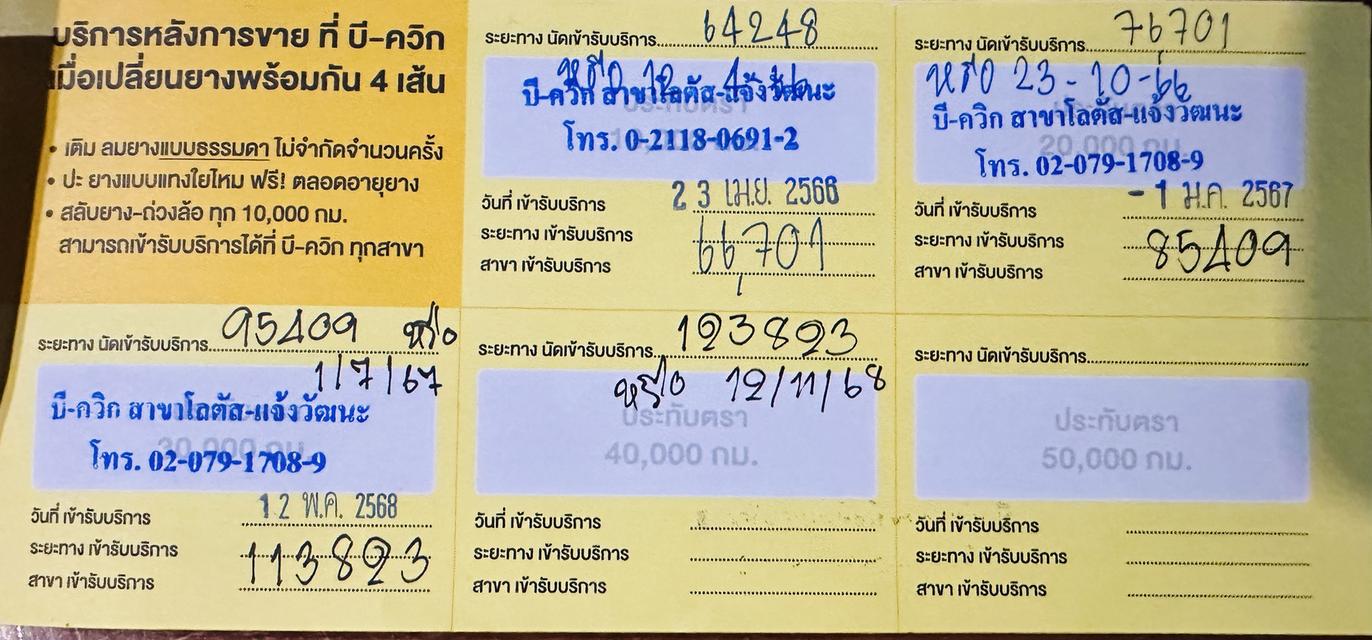 บริการหลังการขาย ที่ บี-ควิก
เมื่อเปลี่ยนยางพร้อมกัน 4 เส้น
• เติม ลมยางแบบธรรมดา ไม่จำกัดจำนวนครั้ง
• ปะ ยางแบบแทงใยไหม ฟรี! ตลอดอายุยาง
• สลับยาง-ถ่วงล้อ ทุก 10,000 กม.
สามารถเข้ารับบริการได้ที่ บี-ควิก ทุกสาขา
ระยะทาง นัดเข้ารับบริการ 64248
หรือ
บี-ควิก สาขาโลตัส-แจ้งวัฒนะ
โทร. 0-2118-0691-2
วันที่ เข้ารับบริการ 23 เม.ย. 2566
ระยะทาง เข้ารับบริการ 66701
สาขา เข้ารับบริการ
ระยะทาง นัดเข้ารับบริการ 76701
หรือ 23-10-66
ประทับตรา
บี-ควิก สาขาโลตัส-แจ้งวัฒนะ
20,000 กม.
โทร. 02-079-1708-9
วันที่ เข้ารับบริการ -1 ม.ค. 2567
ระยะทาง เข้ารับบริการ 85409
สาขา เข้ารับบริการ
ระยะทาง นัดเข้ารับบริการ 95409 หรือ
1/7/67
บี-ควิก สาขาโลตัส-แจ้งวัฒนะ
30,000 กม.
โทร. 02-079-1708-9
วันที่ เข้ารับบริการ 12 พ.ค. 2568
ระยะทาง เข้ารับบริการ 113823
สาขา เข้ารับบริการ
ระยะทาง นัดเข้ารับบริการ 123823
หรือ 12/11/68
ประทับตรา
40,000 กม.
วันที่ เข้ารับบริการ
ระยะทาง เข้ารับบริการ
สาขา เข้ารับบริการ
ระยะทาง นัดเข้ารับบริการ
ประทับตรา
50,000 กม.
วันที่ เข้ารับบริการ
ระยะทาง เข้ารับบริการ
สาขา เข้ารับบริการ